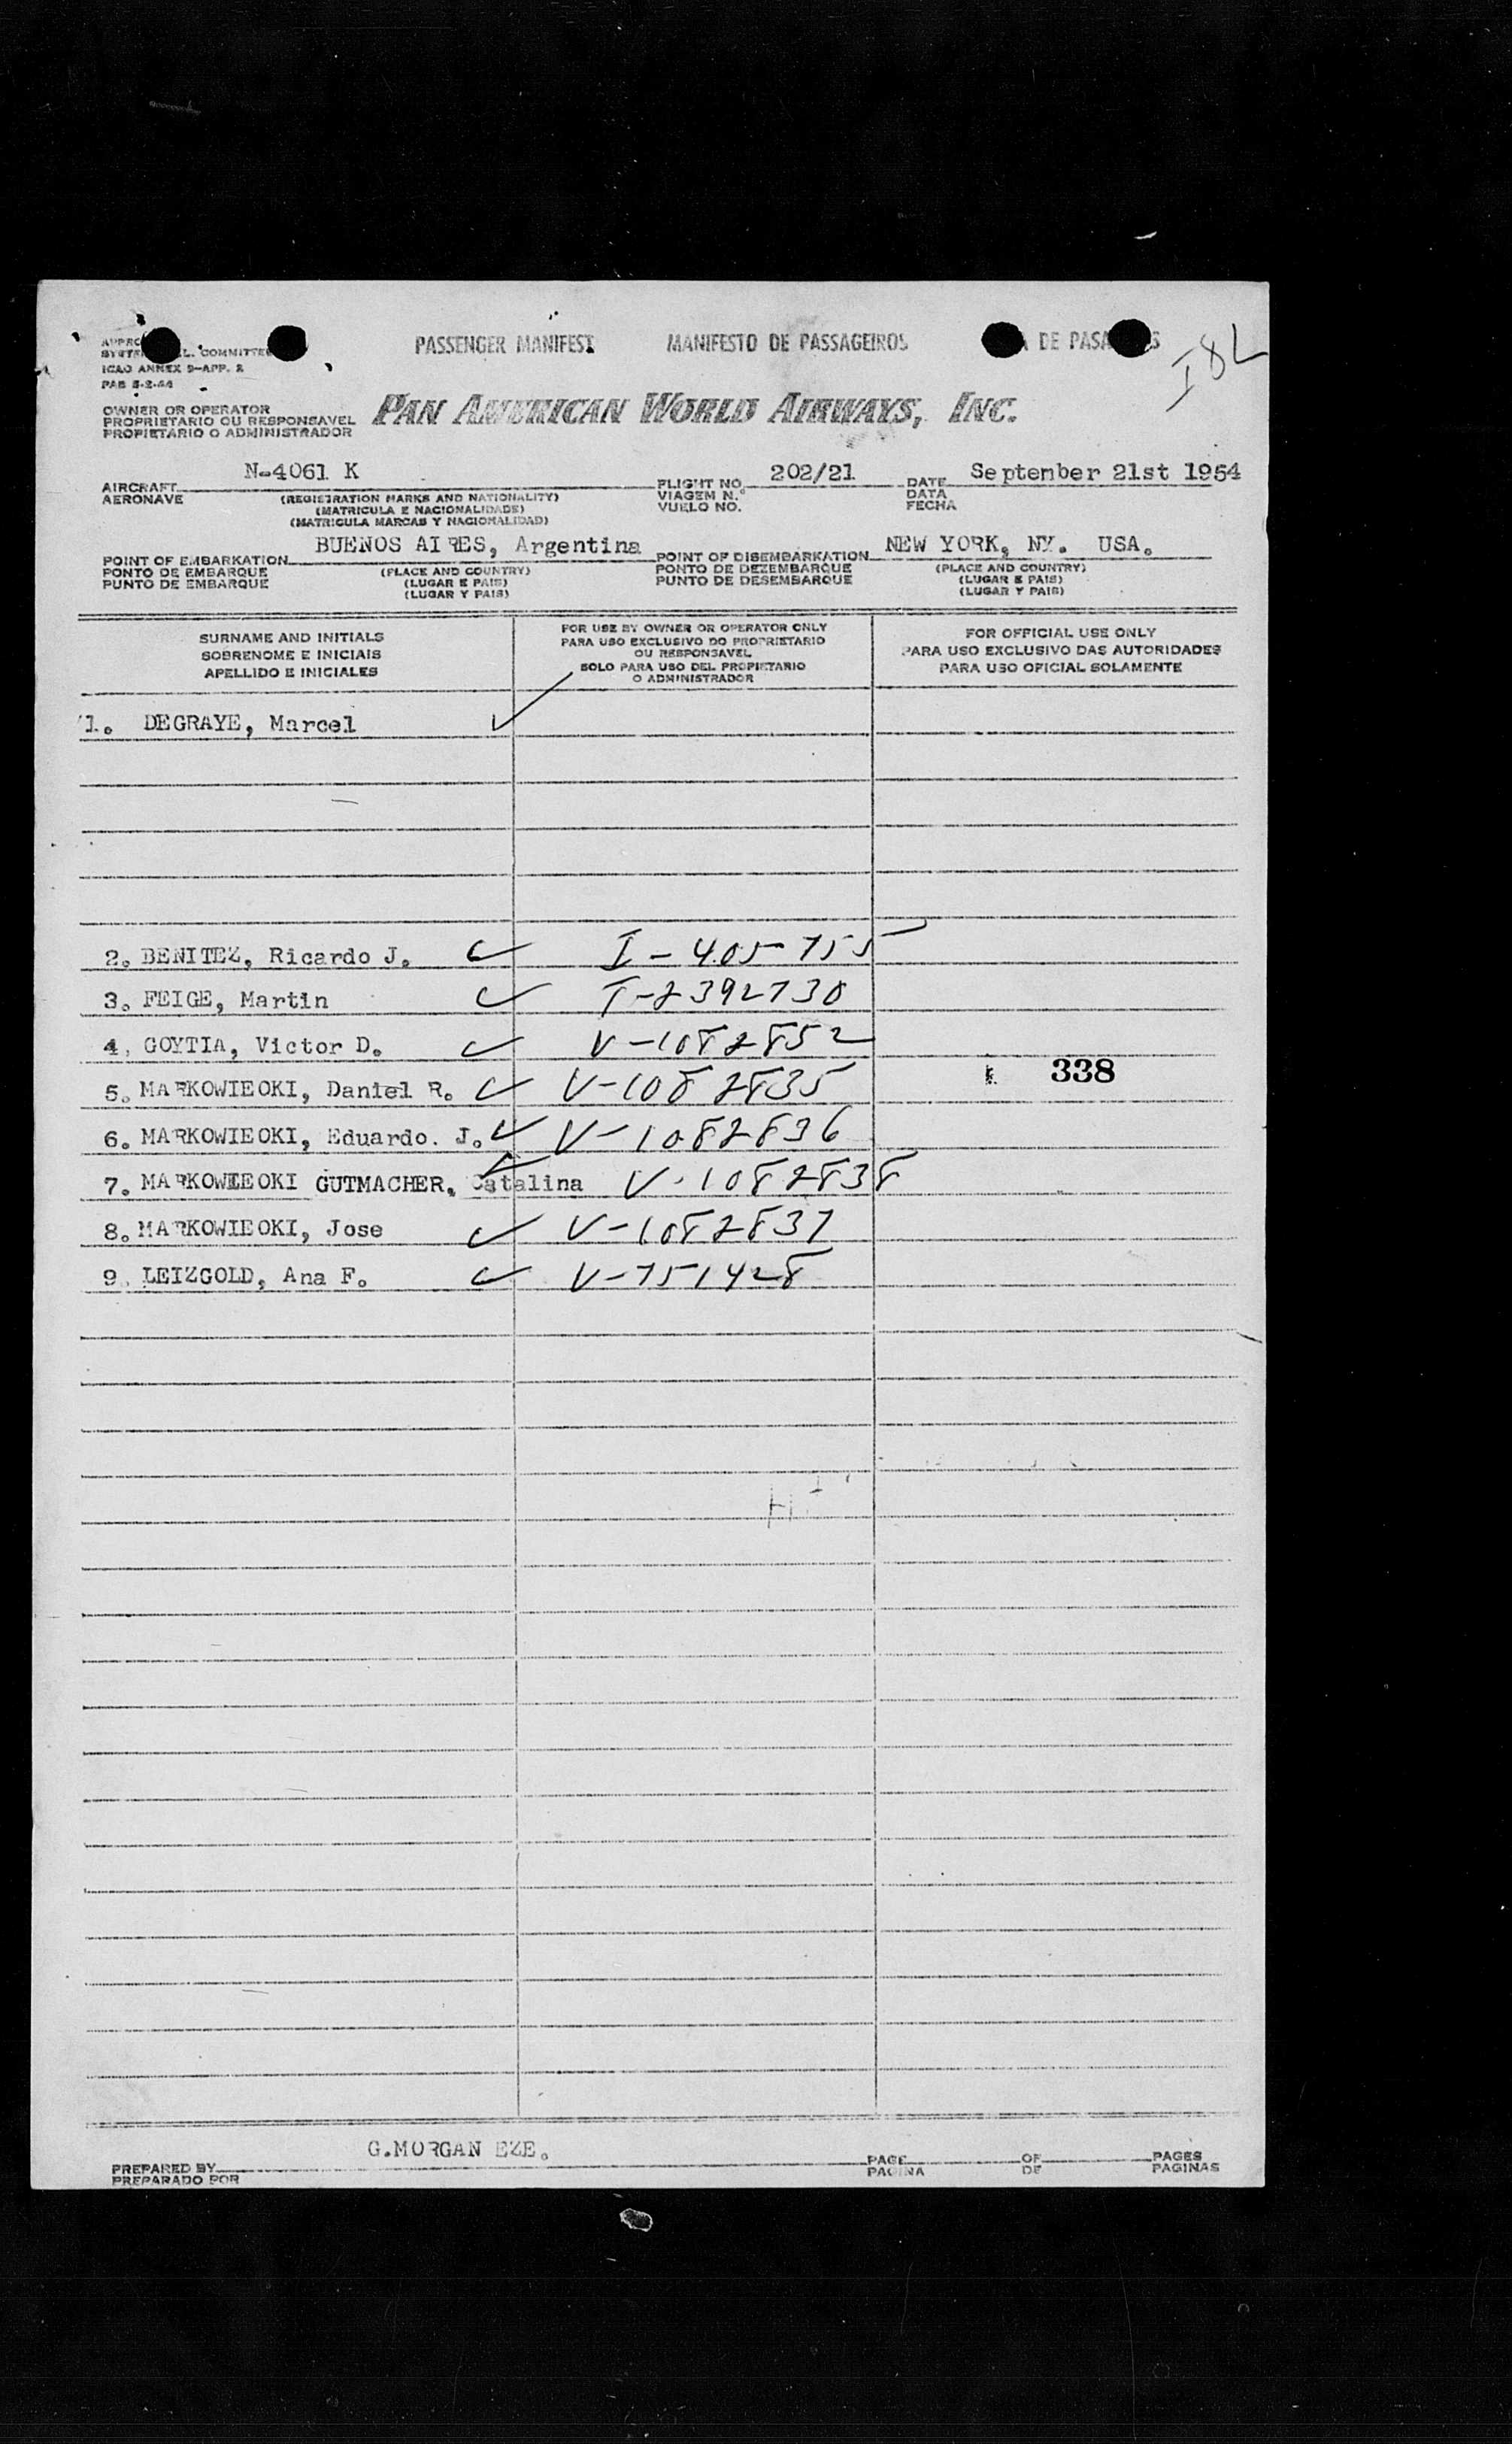 PASSENGER MANIFEST MANIFESTO DE PASSAGEIROS DE PASA
I 82
L. COMMITTEE
ICAO ANNEX 9-APP. 2
PAB 5-2-44
OWNER OR OPERATOR
PROPRIETARIO OU RESPONSAVEL
PROPIETARIO O ADMINISTRADOR
PAN AMERICAN WORLD AIRWAYS, INC.
AIRCRAFT N-4061 K FLIGHT NO. 202/21 DATE September 21st 1954
AERONAVE (REGISTRATION MARKS AND NATIONALITY) VIAGEM N.º DATA
(MATRICULA E NACIONALIDADE) VUELO NO. FECHA
(MATRICULA MARCAS Y NACIONALIDAD)
POINT OF EMBARKATION BUENOS AIRES, Argentina POINT OF DISEMBARKATION NEW YORK, NY. USA.
PONTO DE EMBARQUE (PLACE AND COUNTRY) PONTO DE DEZEMBARQUE (PLACE AND COUNTRY)
PUNTO DE EMBARQUE (LUGAR E PAIS) PUNTO DE DESEMBARQUE (LUGAR E PAIS)
(LUGAR Y PAIS) (LUGAR Y PAIS)
SURNAME AND INITIALS
SOBRENOME E INICIAIS
APELLIDO E INICIALES
FOR USE BY OWNER OR OPERATOR ONLY
PARA USO EXCLUSIVO DO PROPRIETARIO
OU RESPONSAVEL
SOLO PARA USO DEL PROPIETARIO
O ADMINISTRADOR
FOR OFFICIAL USE ONLY
PARA USO EXCLUSIVO DAS AUTORIDADES
PARA USO OFICIAL SOLAMENTE
1. DEGRAYE, Marcel ✓
2. BENITEZ, Ricardo J. ✓ I-405755
3. FEIGE, Martin ✓ T-2392730
4. GOYTIA, Victor D. ✓ V-1082852
5. MARKOWIECKI, Daniel R. ✓ V-1082835 338
6. MARKOWIECKI, Eduardo. J. ✓ V-1082836
7. MARKOWIECKI GUTMACHER, Catalina V-1082838
8. MARKOWIECKI, Jose ✓ V-1082837
9. LEIZGOLD, Ana F. ✓ V-751428
G.MORGAN EZE.
PREPARED BY PAGE OF PAGES
PREPARADO POR PAGINA DE PAGINAS